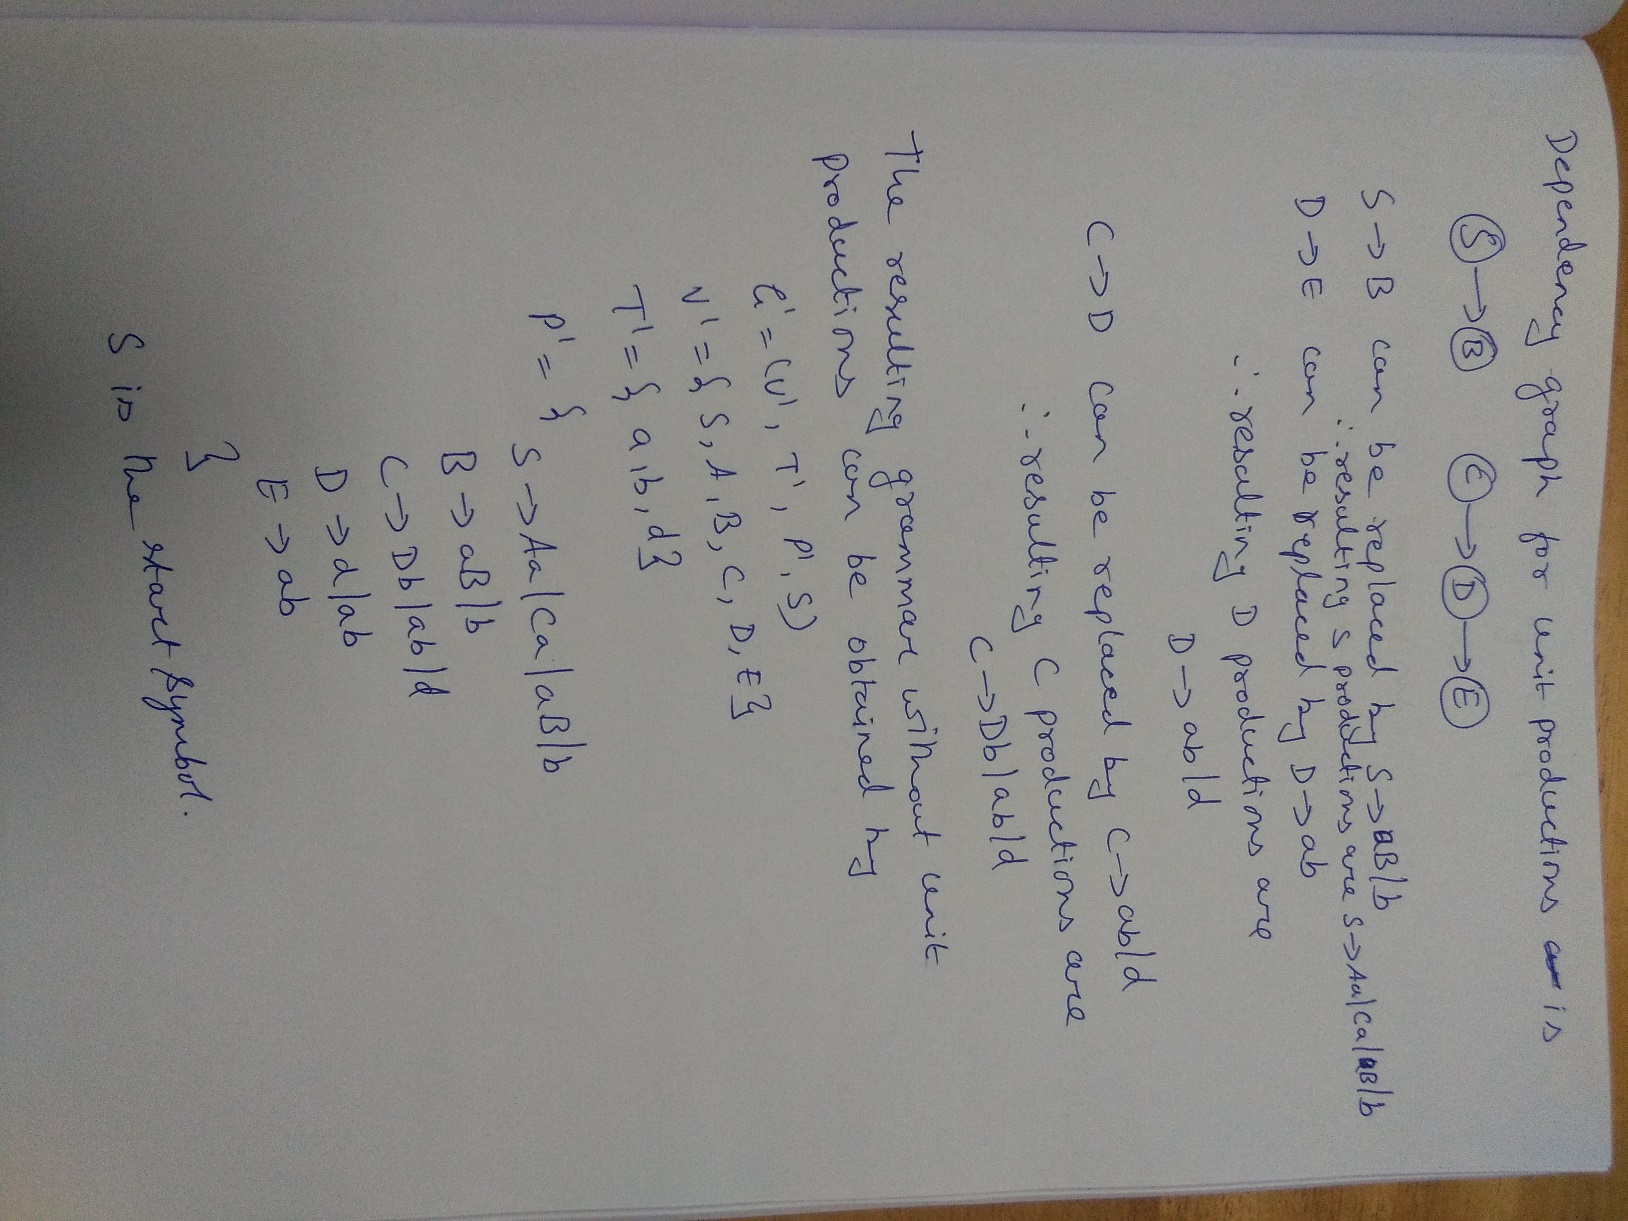 Dependency graph for unit productions is
S → B C → D → E
S → B can be replaced by S → aB|b
∴ resulting S productions are S → Aa|Ca|aB|b
D → E can be replaced by D → ab
∴ resulting D productions are
D → ab|d
C → D can be replaced by C → ab|d
∴ resulting C productions are
C → Db|ab|d
The resulting grammar without unit
productions can be obtained by
G' = (V', T', P', S)
V' = { S, A, B, C, D, E}
T' = { a, b, d}
P' = {
S → Aa|Ca|aB|b
B → aB|b
C → Db|ab|d
D → d|ab
E → ab
}
S is the start symbol.